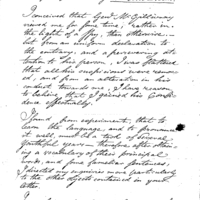 I conceived that Genl. McGillivray
viewed me, for some time, rather in
the light of a spy, than otherwise —
but from an uniform declaration to
the contrary, and a perseverance in at-
tention to his person, I was flattered
that all his suspicions were remov-
ed, and from an alteration in his
conduct towards me, I have reason
to believe that I gained his Confi-
dence effectually.
I found, from experiments, that to
learn the language, and to pronounce
it well, must be a task of several
youthful years — therefore after obtain-
ing a vocabulary of those principal
words, and some familiar sentences,
I directed my inquiries more particularly
to the other objects contained in your
letter.